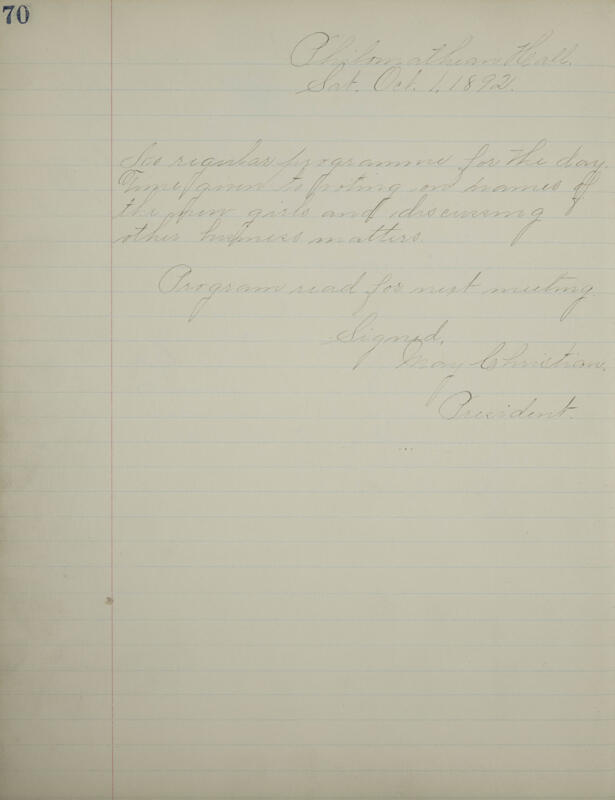 70
Philomathean Hall.
Sat. Oct. 1, 1892.
No regular programme for the day.
Time given to voting on names of
the new girls and discussing
other business matters.
Program read for next meeting.
Signed,
May Christian,
President.